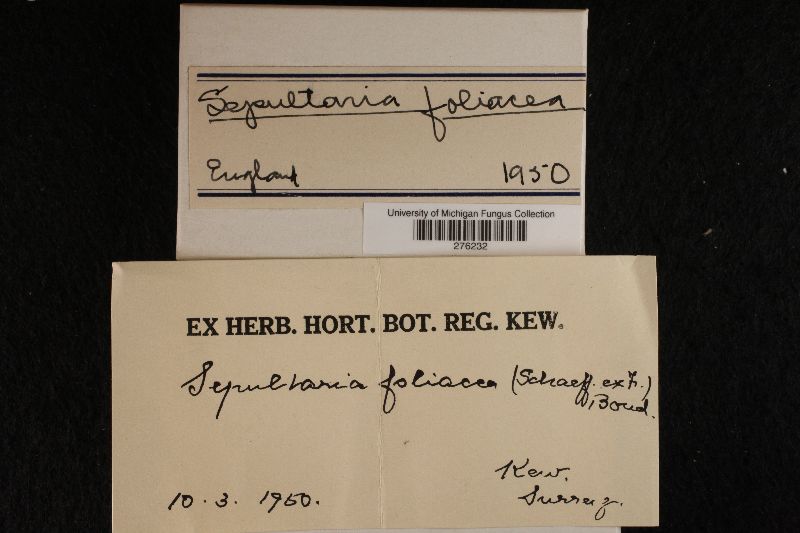 Sepultaria foliacea
England 1950
University of Michigan Fungus Collection
276232
EX HERB. HORT. BOT. REG. KEW.
Sepultaria foliacea (Schaeff. ex F.)
Boud.
Kew.
10. 3. 1950. Surrey.